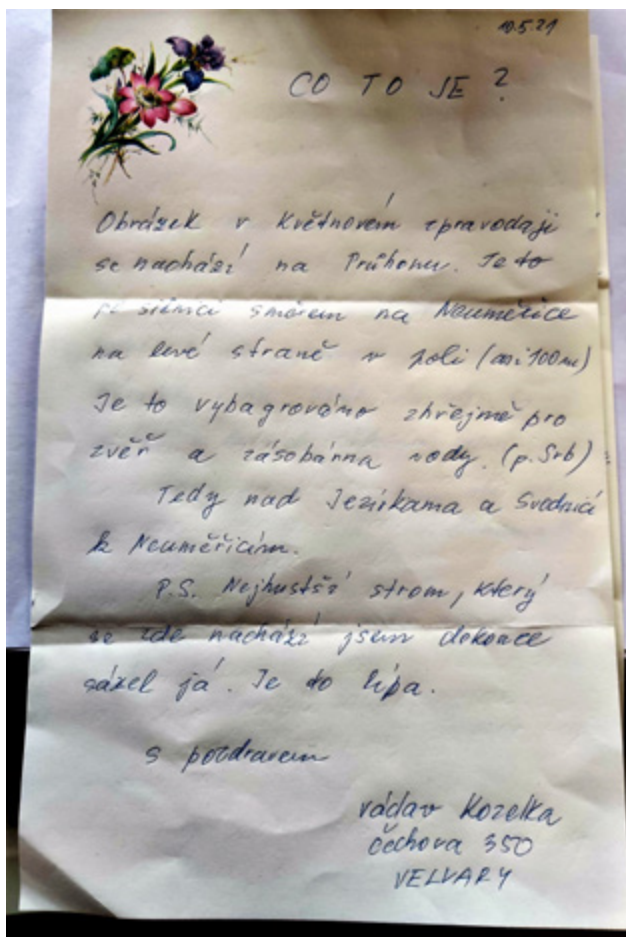 10.5.21
CO TO JE ?
Obrázek v Květnovém zpravodaji
se nachází na Průhonu. Je to
po silnici směrem na Neuměřice
na levé straně v poli (asi 100m)
Je to vybagrováno zhřejmě pro
zvěř a zásobárna vody. (p. Srb)
Tedy nad Jezírkama a Svodnicí
k Neuměřicím.
P.S. Nejhustší strom, který
se zde nachází jsem dokonce
sázel já. Je to lípa.
s pozdravem
Václav Kozelka
Čechova 350
VELVARY